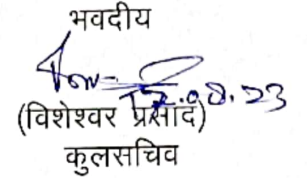 भवदीय
12.08.23
(विशेश्वर प्रसाद)
कुलसचिव